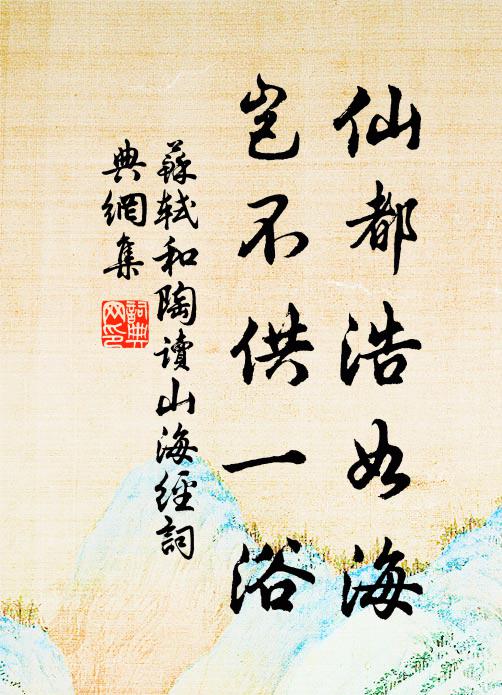 仙都浩如海
岂不供一浴
蘇軾和陶讀山海經詞
典網集
詞典
网印